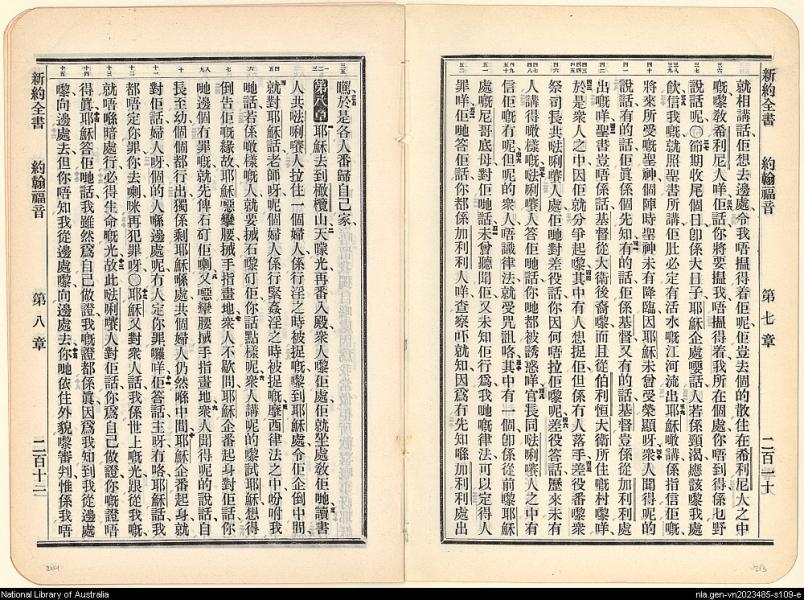 新約全書　約翰福音　第七章　二百一十
就相講話佢想去邊處令我唔搵得着佢呢佢豈去個的散住在希利尼人之中
嘅嚟敎希利尼人咩佢話你將要搵我唔搵得着我所在個處你唔到得係乜野
說話呢〇節期收尾個日卽係大日子耶穌企處嚟話人若係頸渴應該嚟我處
飲信我嘅就照聖書所講佢肚必定有活水嘅江河流出耶穌噉講係指信佢嘅
將來所受嘅聖神個陣時聖神未有降臨因耶穌未曾受榮顯呀衆人聞得呢的
說話有的話佢眞係個先知有的話佢係基督又有的話基督豈係從加利利處
出嘅咩聖書豈唔係話基督從大衛後裔嚟而且從伯利恒大衛所住嘅村嚟咩
於是衆人之中因佢就分爭起嚟其中有人想捉佢但係冇人落手差役番嚟衆
祭司長共𠵽唎㘔人處佢哋對差役話你因何唔拉佢嚟呢差役答話歷來未有
人講得噉樣嘅𠵽唎㘔人答佢哋話你哋都被誘惑咩官長同𠵽唎㘔人之中有
信佢嘅有呢但呢的衆人唔識律法就受咒詛咯其中有一個卽係從前嚟耶穌
處嘅尼哥底母對佢哋話未曾聽聞佢又未知佢行爲我哋嘅律法可以定得人
罪咩佢哋答佢話你都係加利利人咩查察吓就知因爲冇先知喺加利利處出
嘅於是各人番歸自己家
第八章　耶穌去到橄欖山天曚光再番入殿衆人嚟佢處佢就坐處敎佢哋讀書
人共𠵽唎㘔人拉住一個婦人係行淫之時被捉嘅嚟到耶穌處令佢企倒中間
就對耶穌話老師呀呢個婦人係行緊姦淫之時被捉嘅摩西律法之中吩咐我
哋話若係噉樣嘅人就要搣石嚟𢫏佢你話點樣呢衆人講呢的嚟試耶穌想得
倒告佢嘅緣故耶穌𢛴彎腰搣手指畫地衆人不歇問耶穌企番起身對佢話你
哋邊個冇罪嘅就先俾石𢫏佢喇又𢛴彎腰搣手指畫地衆人聞得呢的說話自
長至幼個個都行出獨係剩耶穌喺處共個婦人仍然喺中間耶穌企番起身就
對佢話婦人呀個的人喺邊處呢冇人定你罪囉咩佢答話主呀冇咯耶穌話我
都唔定你罪你去喇咪再犯罪呀〇耶穌又對衆人話我係世上嘅光跟從我嘅
就唔喺暗處行必得生命嘅光故此𠵽唎㘔人對佢話你爲自己做證你嘅證唔
得眞耶穌答佢哋話我雖然爲自己做證我嘅證都係眞因爲我知到我從邊處
嚟向邊處去但你唔知我從邊處嚟向邊處去你哋依住外貌嚟審判惟係我唔
新約全書　約翰福音　第八章　二百十二
National Library of Australia
nla.gen-vn2023485-s109-e